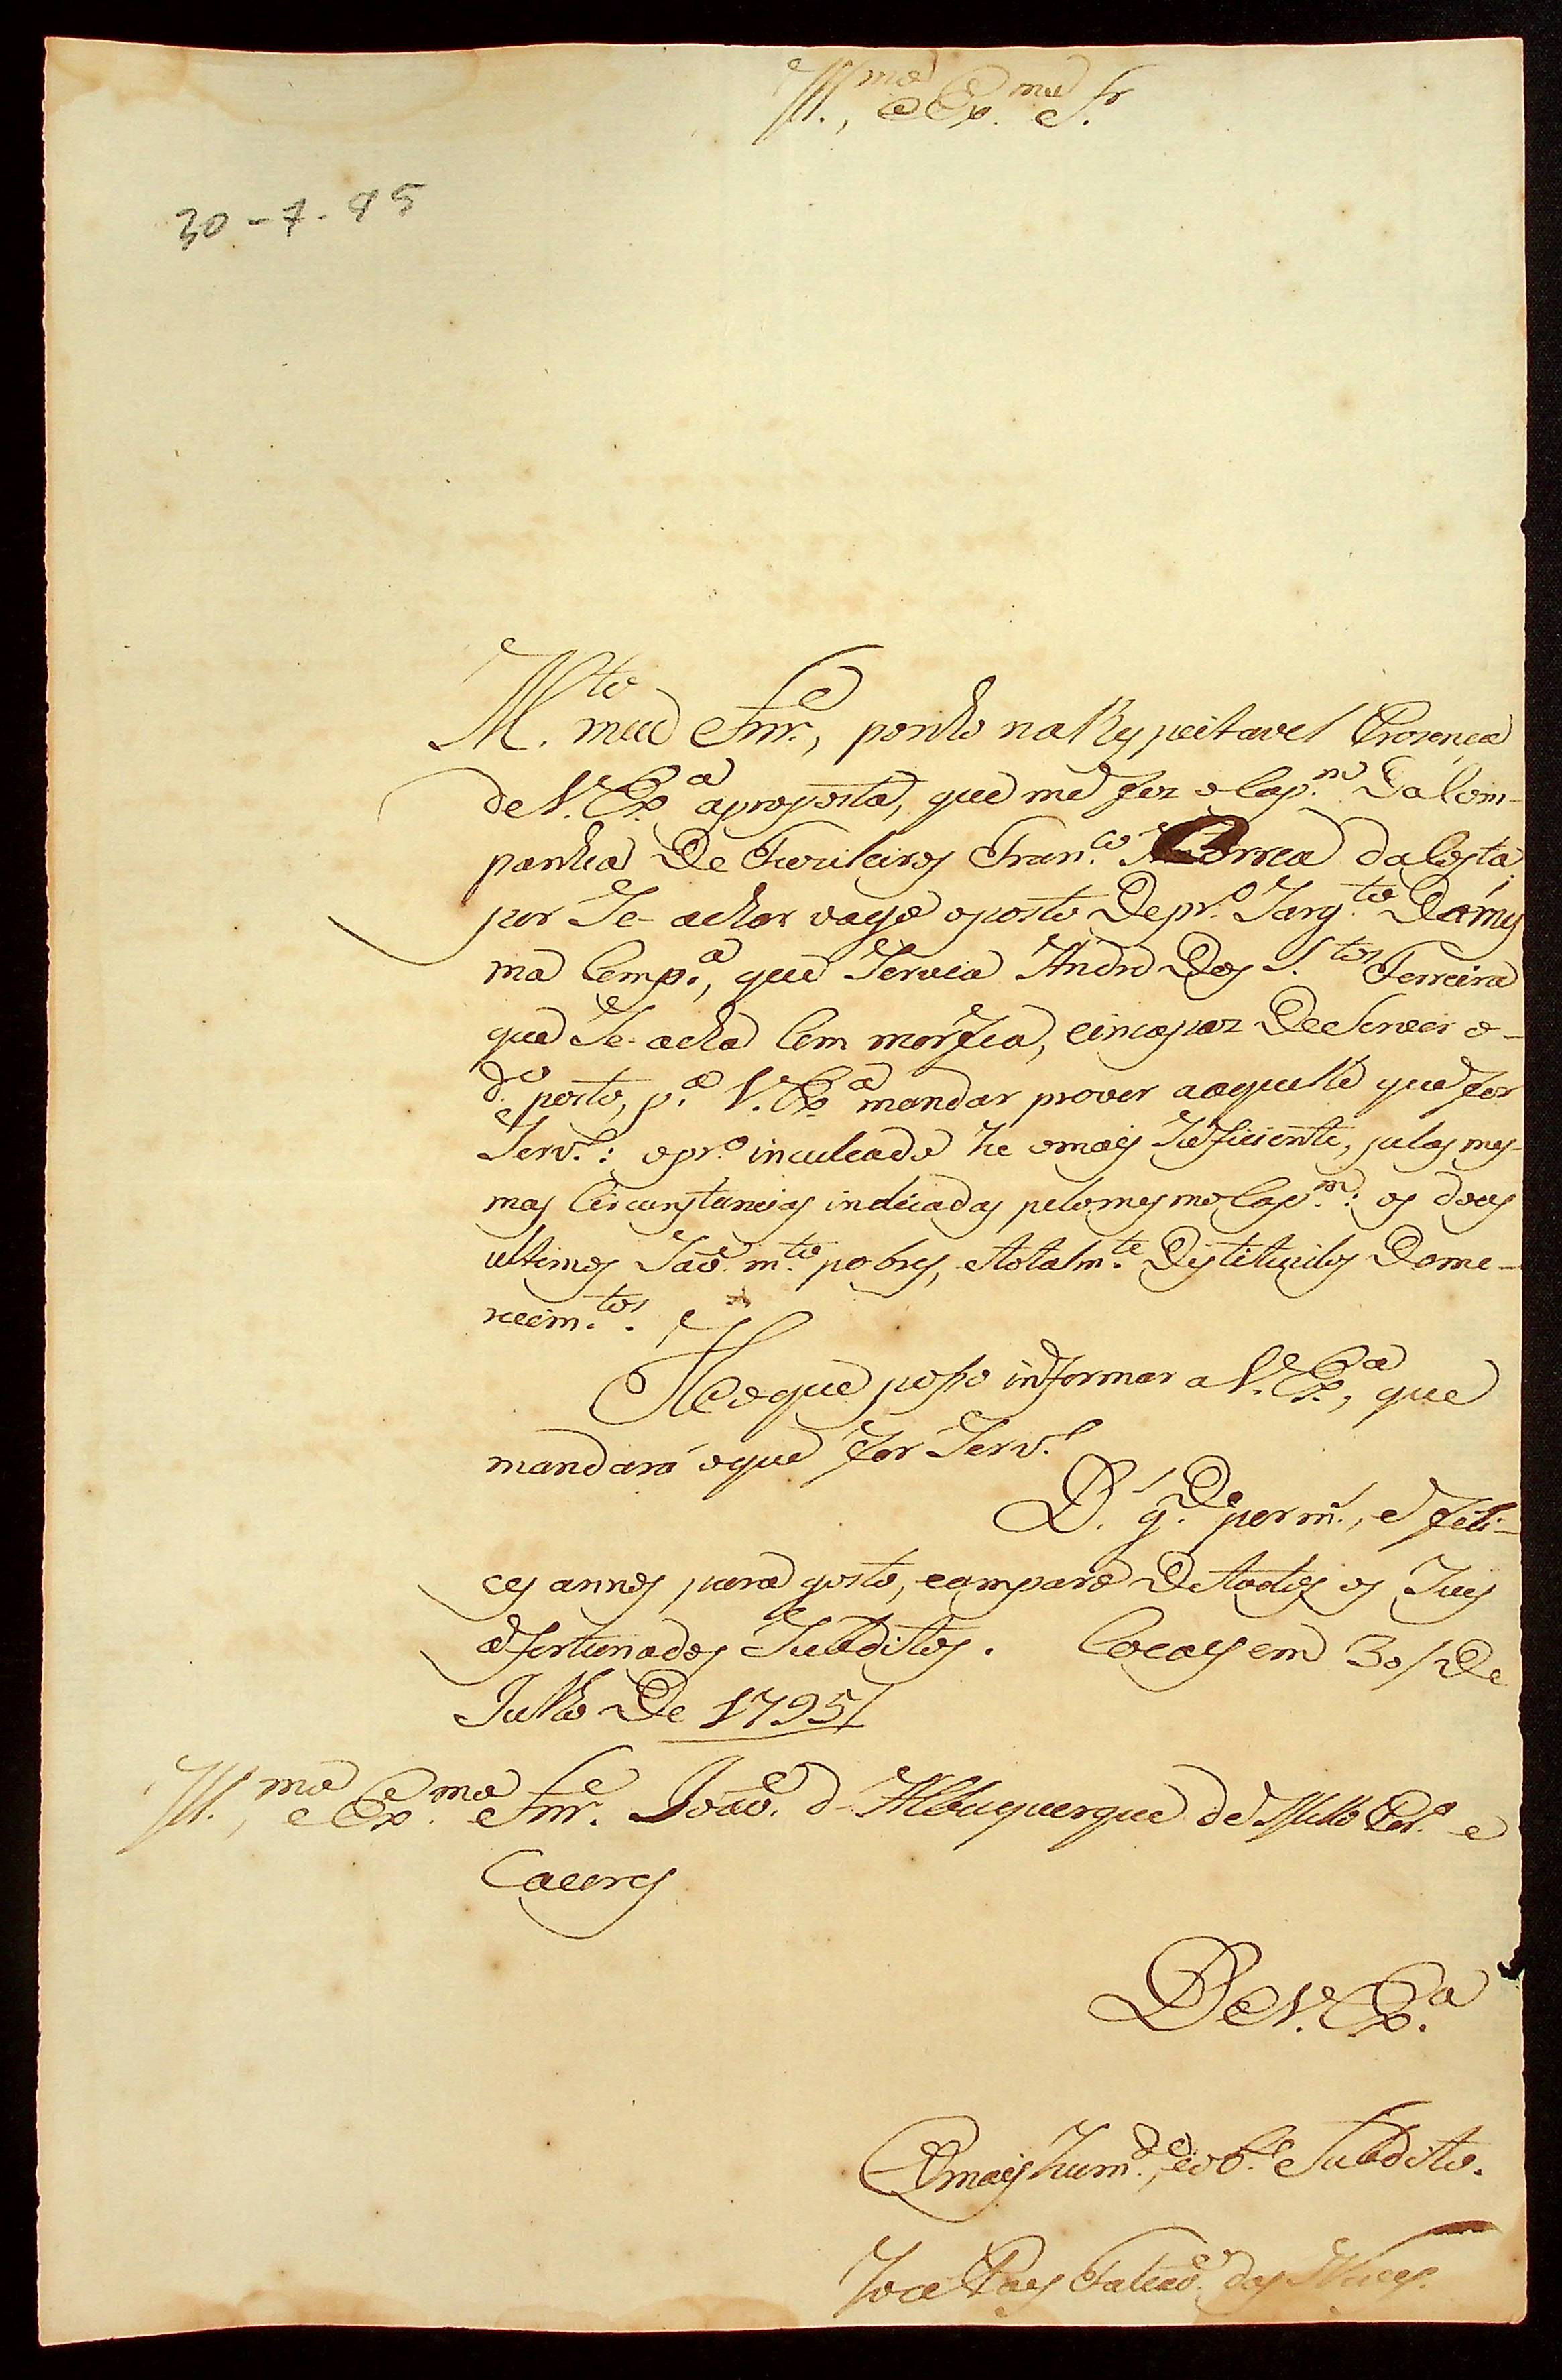 Ill.mo, e Ex.mo Sr
30-7-95
M.to meu Snr., ponho na Respeitavel Prezença
de V. Ex.a aproposta, que me fez o Cap.m da Com-
panhia De Fuzileiros Fran.co Correa da Costa,
por Se achar vago oposto De pr.o Sarg.to Da mes
ma Comp.a, que Servia André Dos S.tos Ferreira
que Se acha Com morfea, eincapaz De Server o
d.o posto, p.a V. Ex.a mandar prover aaquelle que for
Serv.o: opr.o inculcado he omais Suficiente, pelas mes-
mas Circunstancias indicadas pelo mesmo Cap.m: os dous
ultimos Saõ m.to pobres, etotalm.te Destituidos Deme-
recim.tos.
He oque posso informar a V. Ex.a, que
mandará oque for Serv.o
D.s g.De por m.s, e feli-
ces annos para gosto, eamparo De todos os Seus
afortunados Subditos. Cocaes em 30/De
Julho De 1795/
Ill.mo, e Ex.mo Snr. Joaõ d'Albuquerque de Mello Per.a e
Caceres
De V. Ex.a
Omais hum.de, e ob.e Subdito.
Joze Paes Falcaõ das Neves.